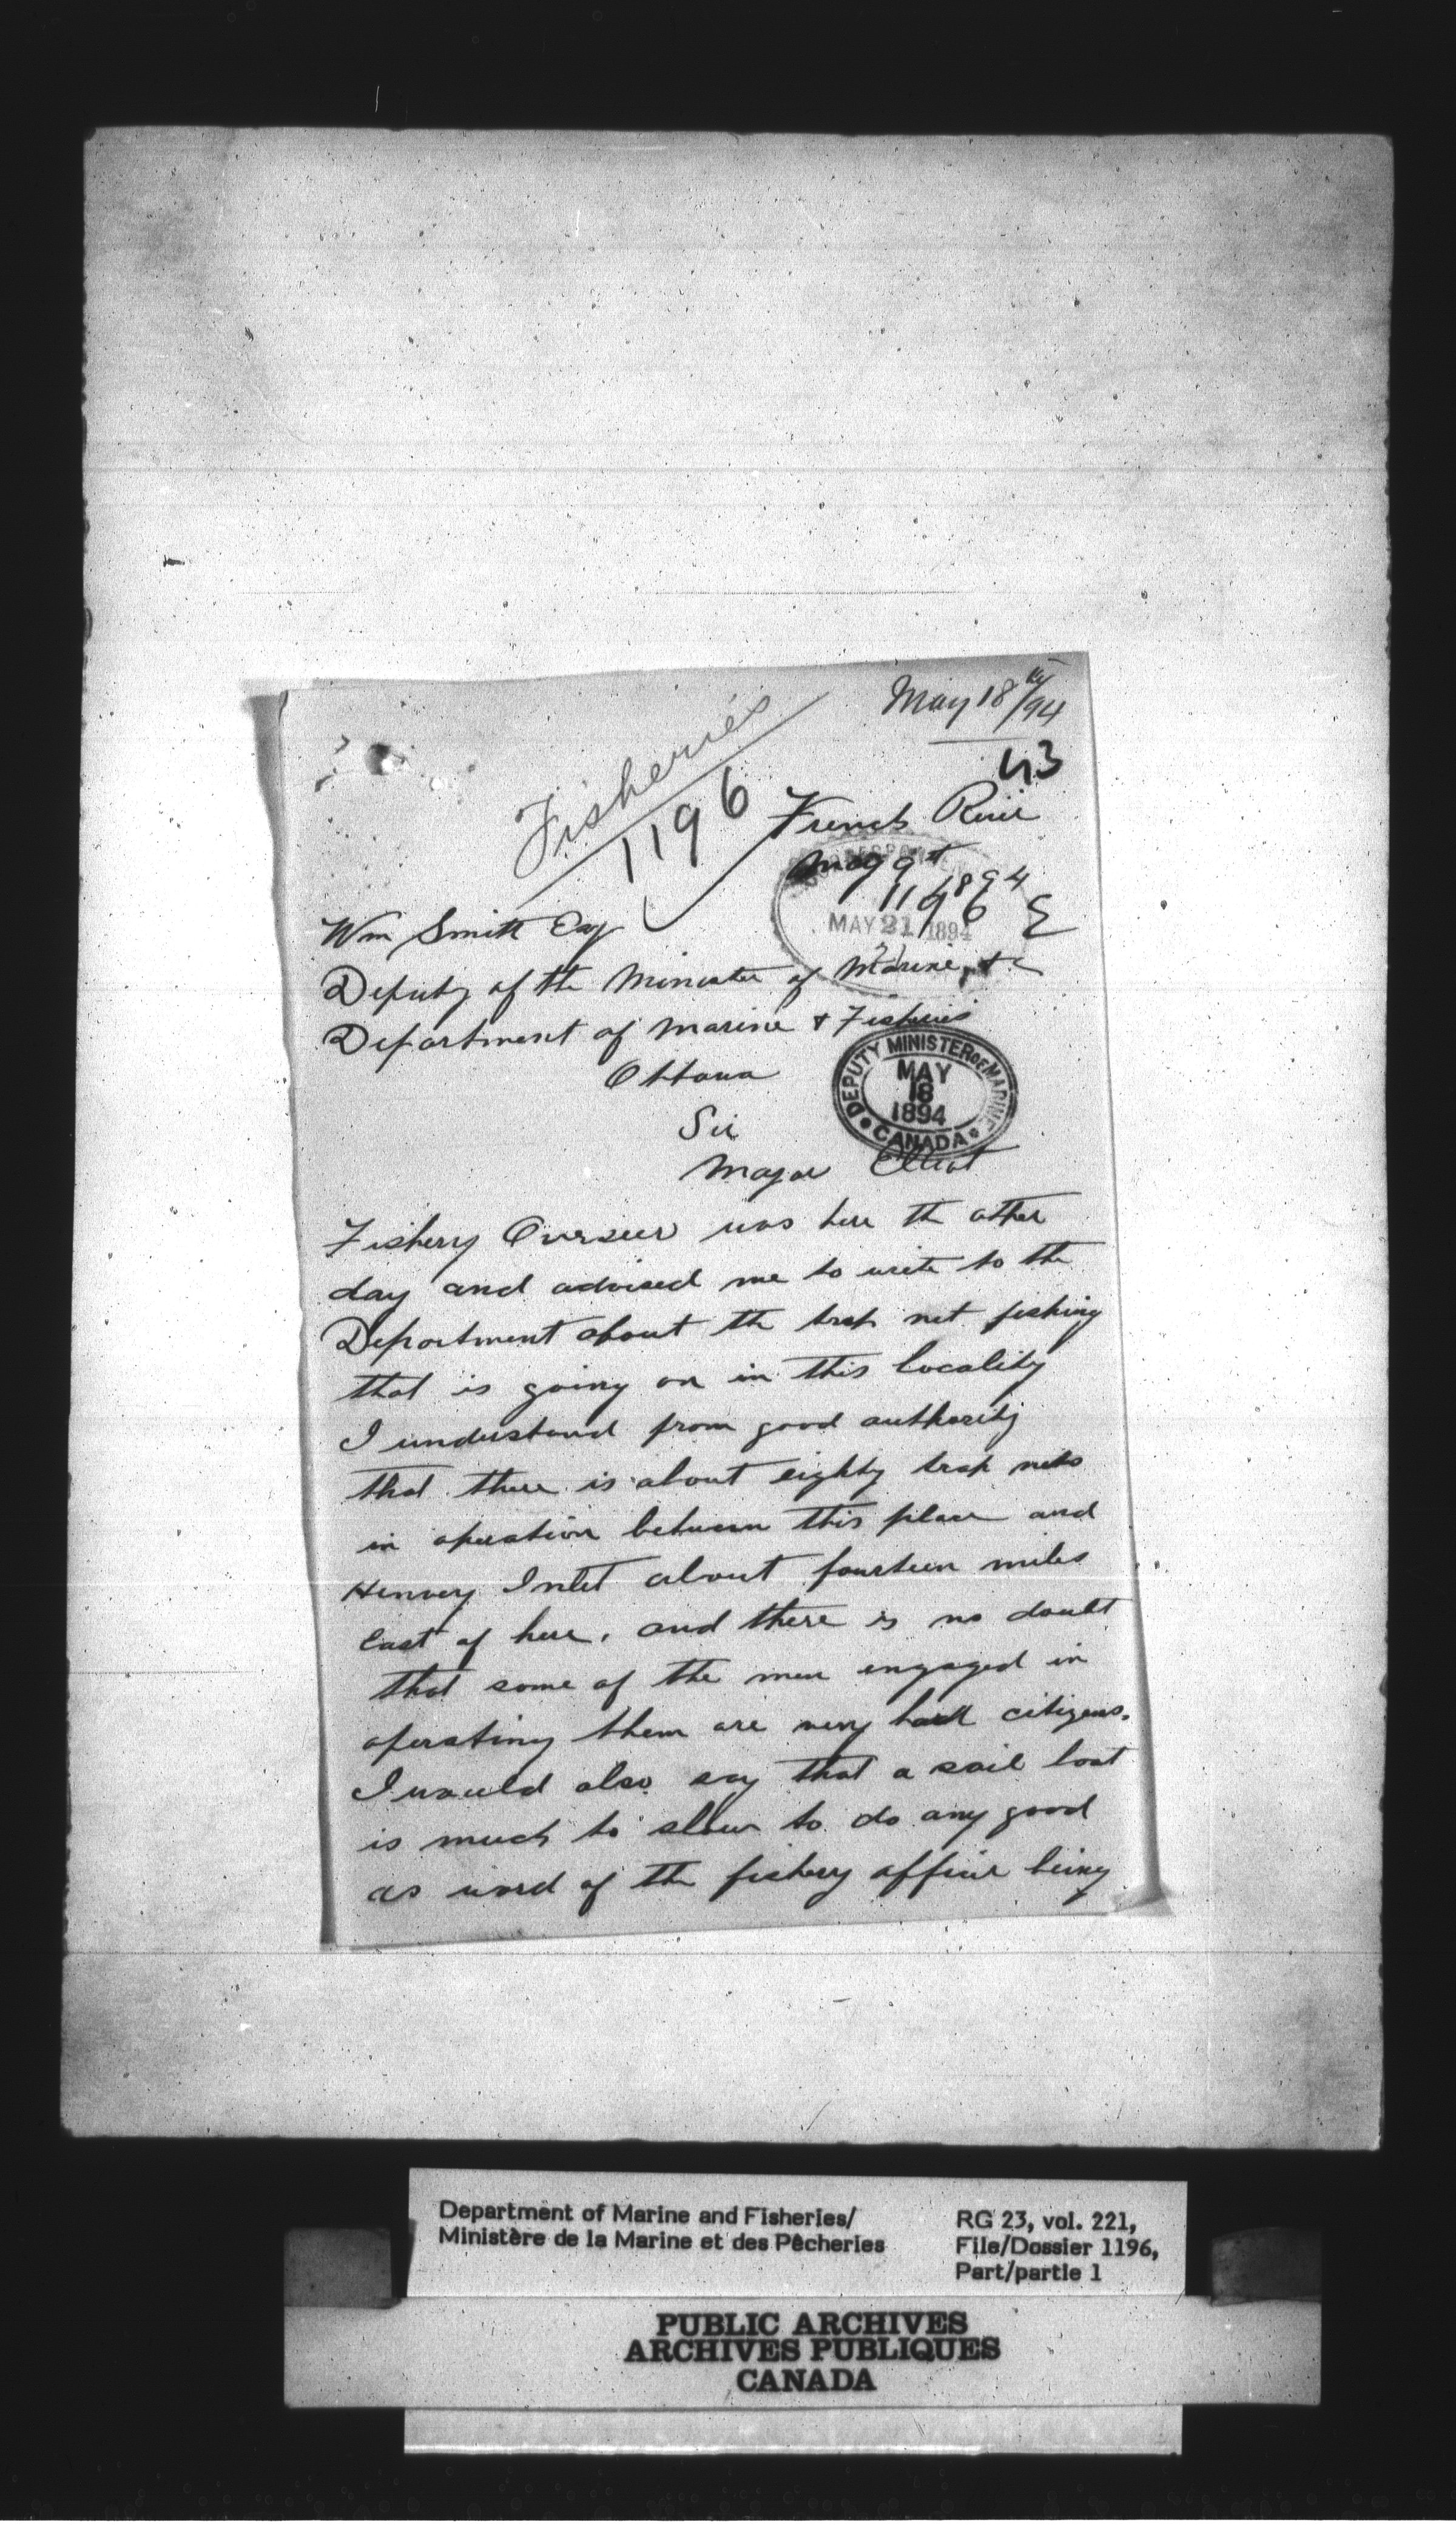 May 18th/94
43
Fisheries
1196
French River
May 9th 1894
1196
MAY 21 1894
Wm Smith Esq
Deputy of the Minister of Marine, &c
Department of Marine & Fisheries
Ottawa
DEPUTY MINISTER OF MARINE
MAY
18
1894
CANADA
Sir
Major Elliot
Fishery Overseer was here the other
day and advised me to write to the
Department about the trap net fishing
that is going on in this locality
I understand from good authority
that there is about eighty trap nets
in operation between this place and
Henvey Inlet about fourteen miles
East of here, and there is no doubt
that some of the men engaged in
operating them are very hard citizens.
I would also say that a sail boat
is much to slow to do any good
as word of the fishery officer being
Department of Marine and Fisheries/
Ministère de la Marine et des Pêcheries
RG 23, vol. 221,
File/Dossier 1196,
Part/partie 1
PUBLIC ARCHIVES
ARCHIVES PUBLIQUES
CANADA